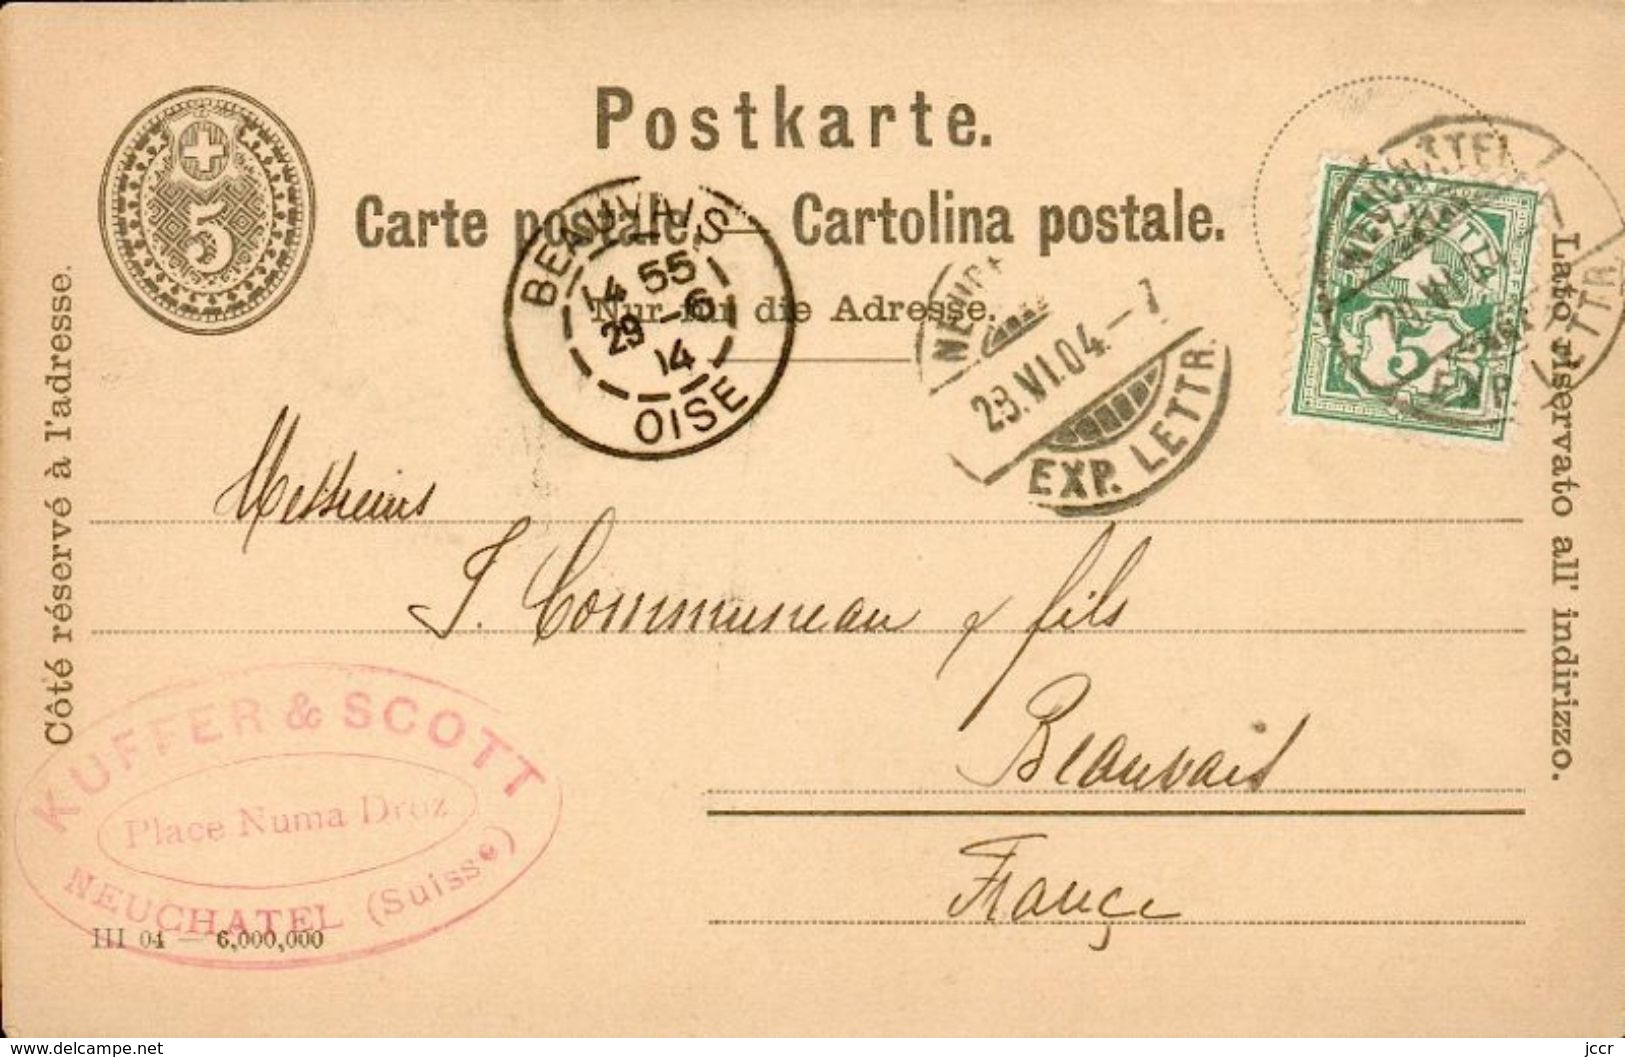 Postkarte.
Carte postale. — Cartolina postale.
Nur für die Adresse.
5
BEAUVAIS
4 55
29 - 6
14
OISE
29.VI.04.-7
EXP. LETTR.
NEUCHÂTEL
EXP. LETTR.
5
Côté réservé à l'adresse.
Lato riservato all' indirizzo.
Messieurs
J. Communeau & fils
Beauvais
France
KUFFER & SCOTT
Place Numa Droz
NEUCHATEL (Suisse)
III 04 — 6,000,000
www.delcampe.net
jccr